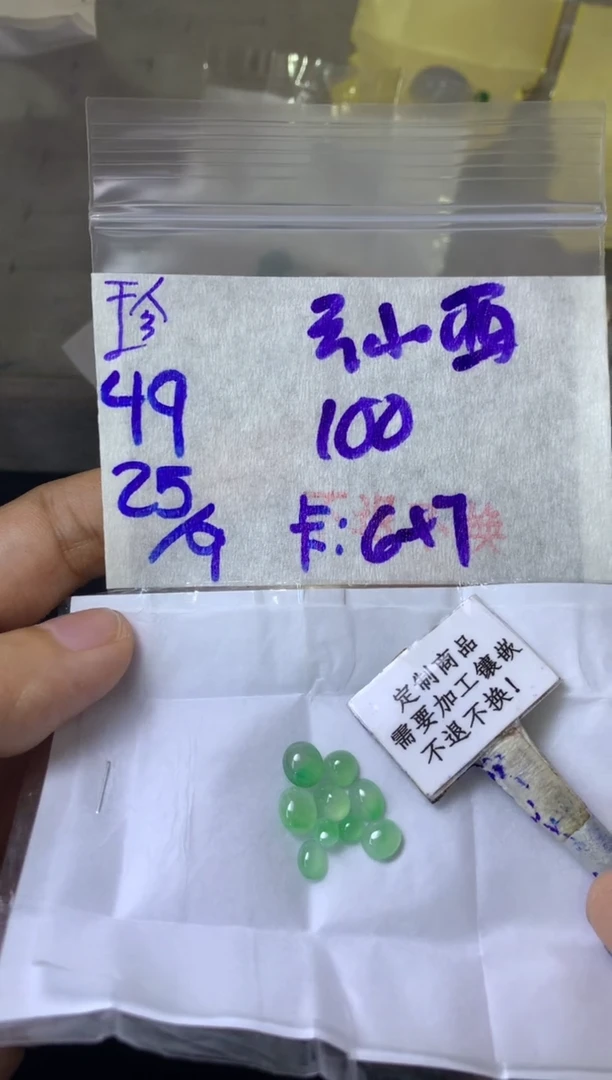 珍
49
25/9
云山西
100
卡:6×7
定制商品
需要加工镶嵌
不退不换!